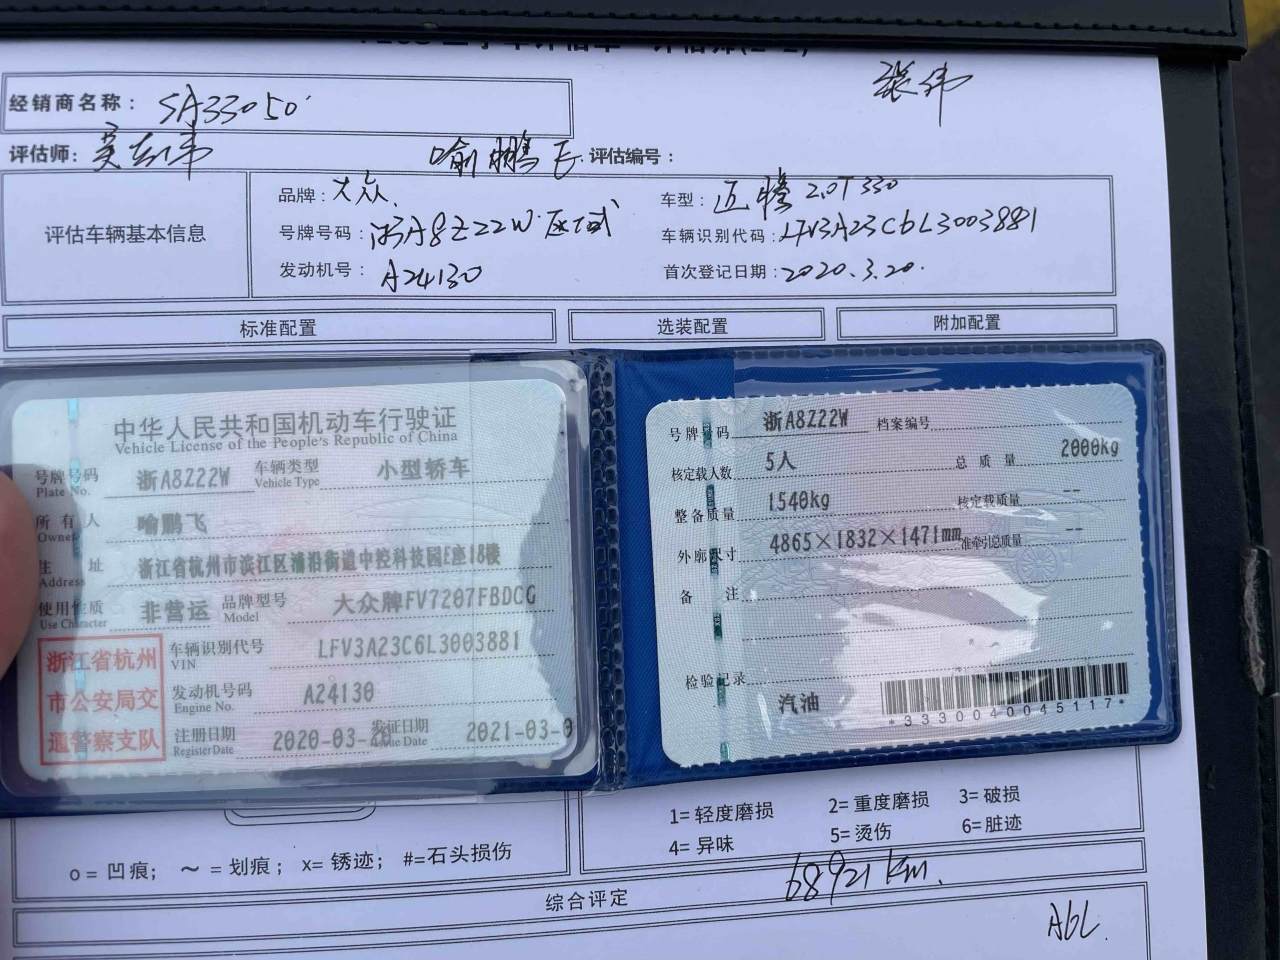 张伟
经销商名称： SA33050
评估师： 喻鹏飞 评估编号：
评估车辆基本信息
品牌：大众 车型：迈腾 2.0T 330
号牌号码：浙A8Z22W 区域 车辆识别代码：LFV3A23C6L3003881
发动机号：A24130 首次登记日期：2020.3.20.
标准配置 选装配置 附加配置
中华人民共和国机动车行驶证
Vehicle License of the People's Republic of China
号牌号码 浙A8Z22W 车辆类型 小型轿车
Plate No. Vehicle Type
所有人 喻鹏飞
Owner
住址 浙江省杭州市滨江区浦沿街道中控科技园E座18楼
Address
使用性质 非营运 品牌型号 大众牌FV7207FBDCG
Use Character Model
浙江省杭州
市公安局交
通警察支队
车辆识别代号 LFV3A23C6L3003881
VIN
发动机号码 A24130
Engine No.
注册日期 2020-03-20 发证日期 2021-03-0
Register Date Issue Date
号牌号码 浙A8Z22W 档案编号
核定载人数 5人 总质量 2000kg
整备质量 1540kg 核定载质量 --
外廓尺寸 4865×1832×1471mm 准牵引总质量 --
备注
检验记录
汽油
*3330040045117*
o = 凹痕； ～ = 划痕； x= 锈迹； #=石头损伤
1= 轻度磨损 2= 重度磨损 3= 破损
4= 异味 5= 烫伤 6= 脏迹
综合评定 68921km.
A6L.